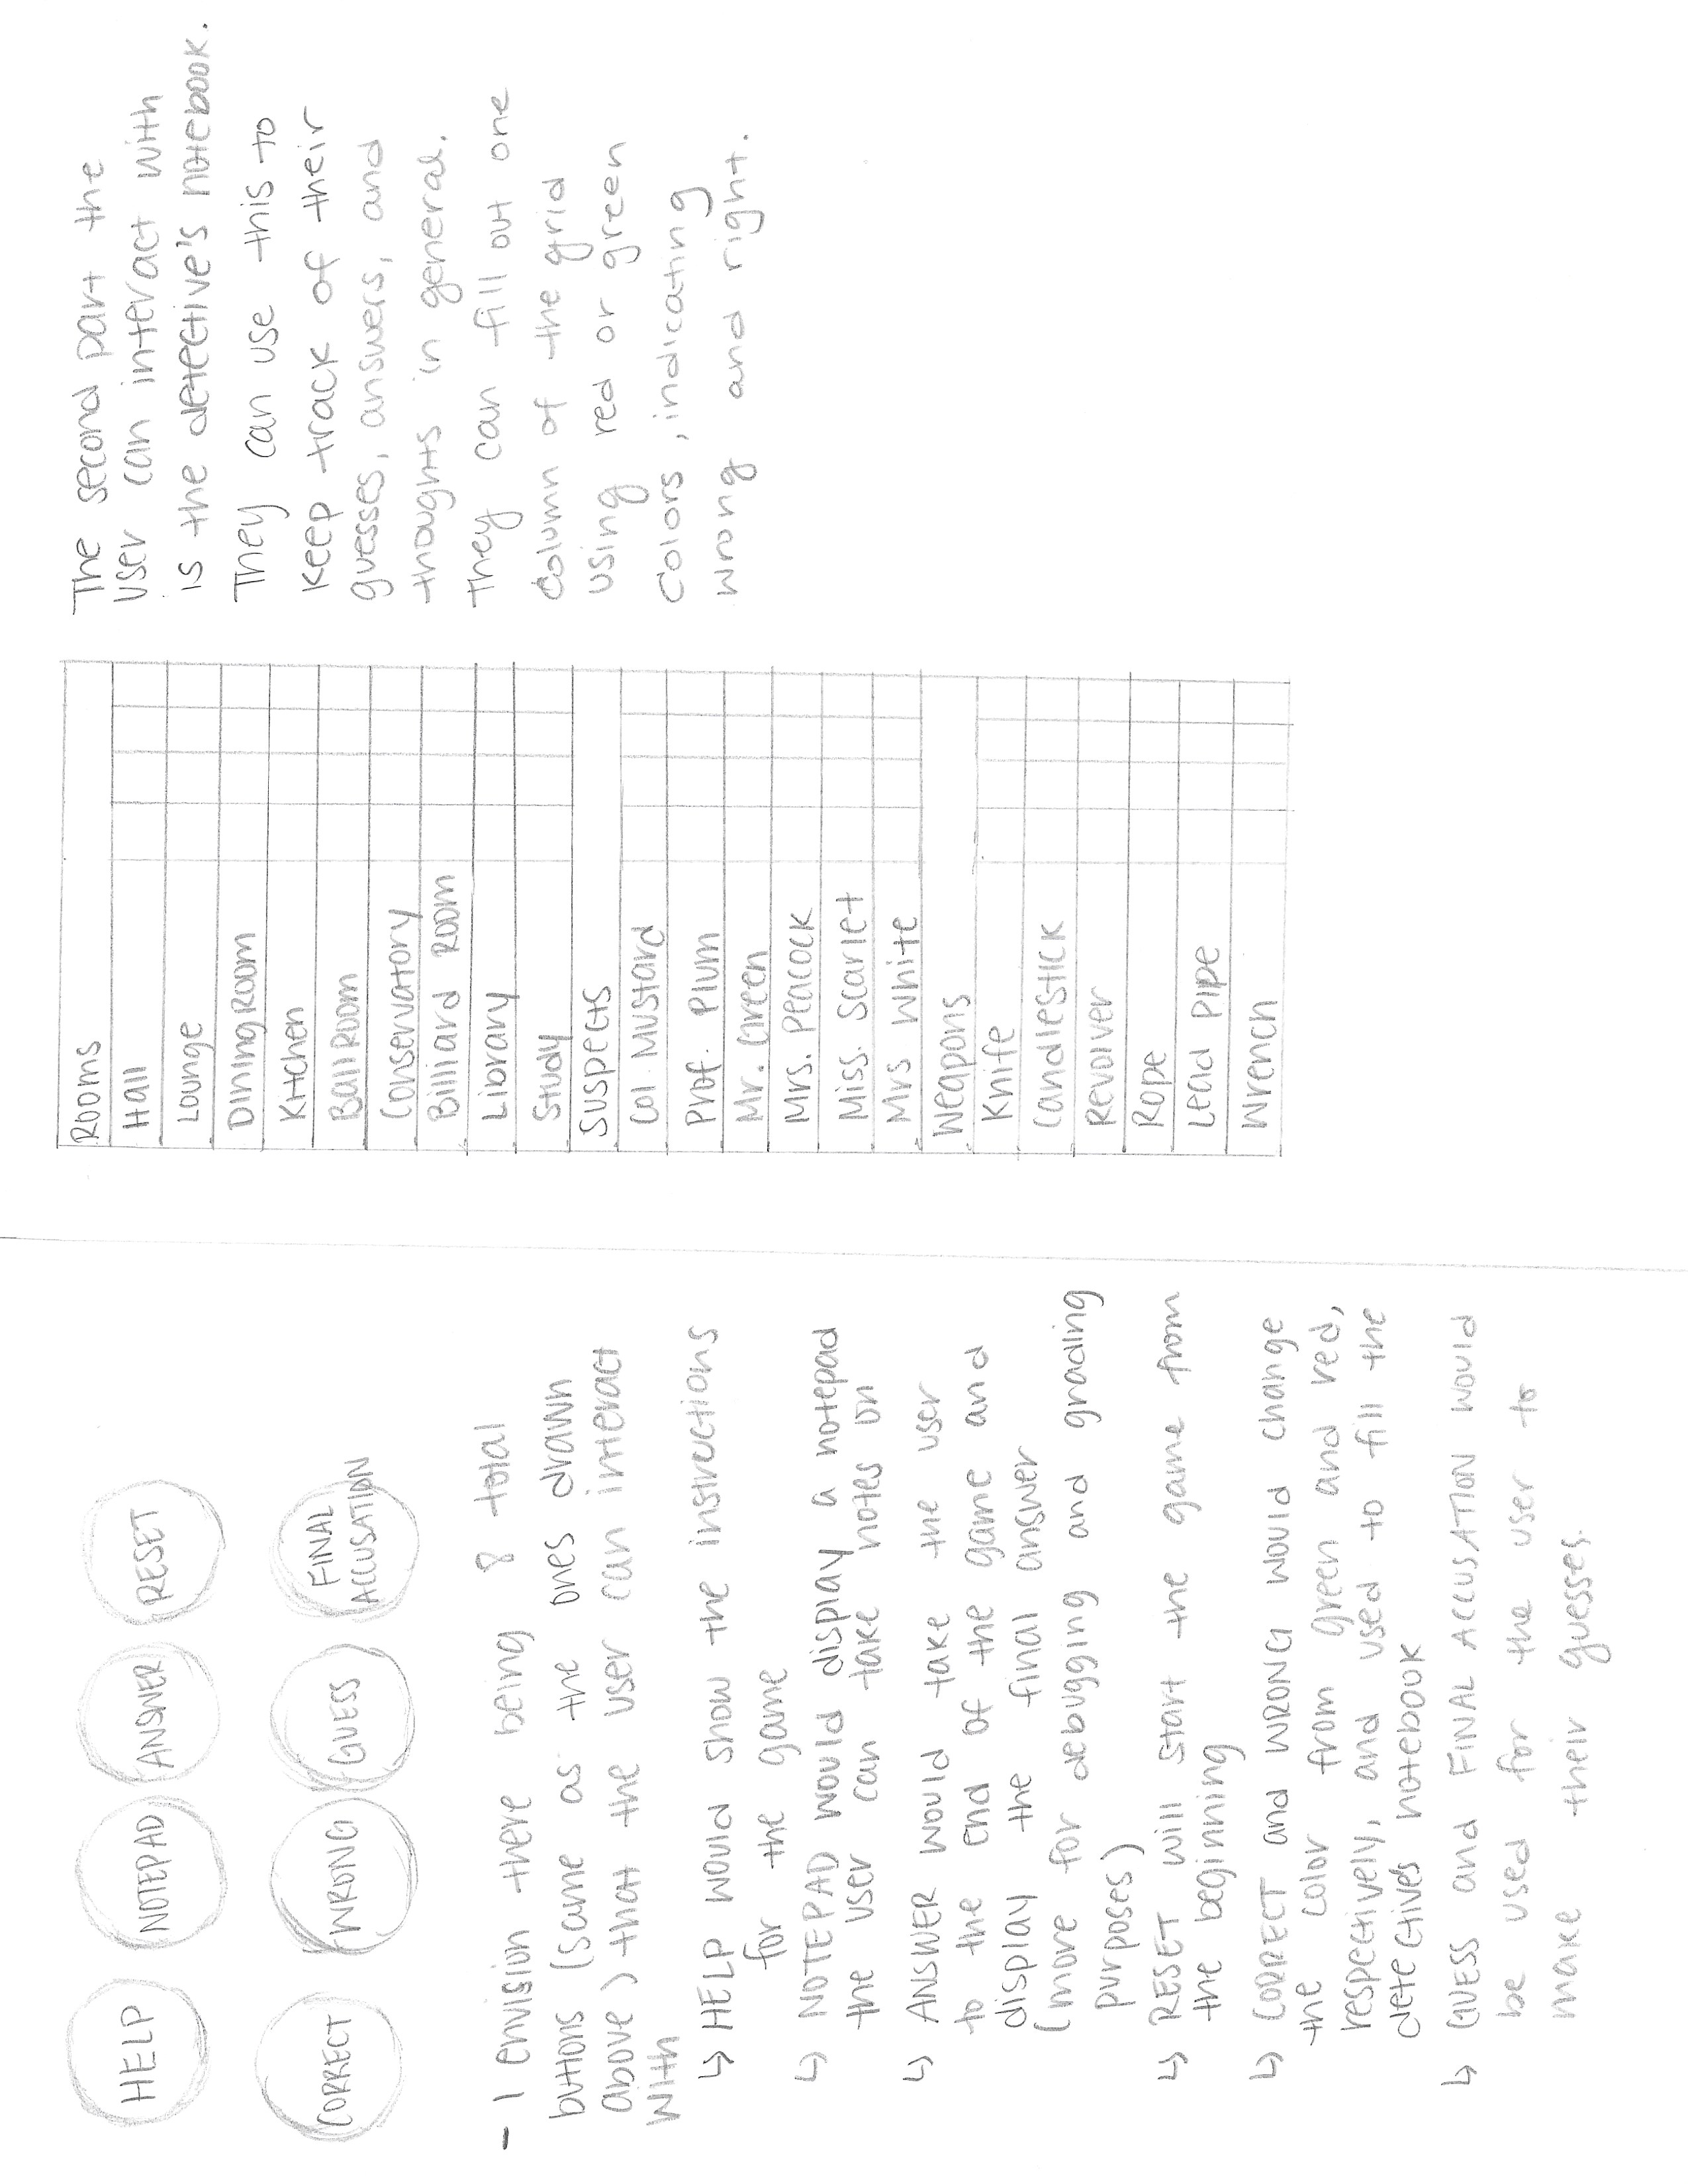 HELP
NOTEPAD
ANSWER
RESET
CORRECT
WRONG
GUESS
FINAL
ACCUSATION
- I envision there being 8 total
buttons (same as the ones drawn
above) that the user can interact
with
↳ HELP would show the instructions
for the game
↳ NOTEPAD would display a notepad
the user can take notes on
↳ ANSWER would take the user
to the end of the game and
display the final answer
(more for debugging and grading
purposes)
↳ RESET will start the game from
the beginning
↳ CORRECT and WRONG would change
the color from green and red,
respectively, and used to fill the
detectives notebook
↳ GUESS and FINAL ACCUSATION would
be used for the user to
make their guesses.
Rooms
Hall
Lounge
Dining Room
Kitchen
Ballroom
Conservatory
Billiard Room
Library
Study
Suspects
Col. Mustard
Prof. Plum
Mr. Green
Mrs. Peacock
Miss. Scarlet
Mrs White
Weapons
Knife
Candlestick
Revolver
Rope
Lead Pipe
Wrench
The second part the
user can interact with
is the detective's notebook.
They can use this to
keep track of their
guesses, answers, and
thoughts in general.
They can fill out one
column of the grid
using red or green
colors, indicating
wrong and right.